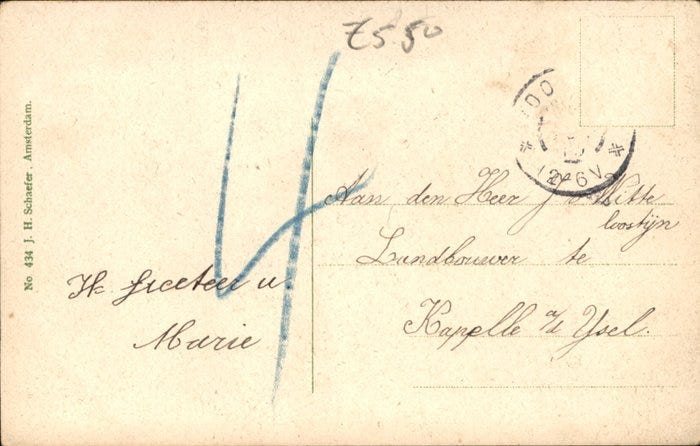 Z5 50
4
No 434 J. H. Schaefer. Amsterdam.
12-6V
Aan den Heer J v Witte
loostijn
Landbouwer te
Kapelle a/d Ysel.
Hr groeten u.
Marie